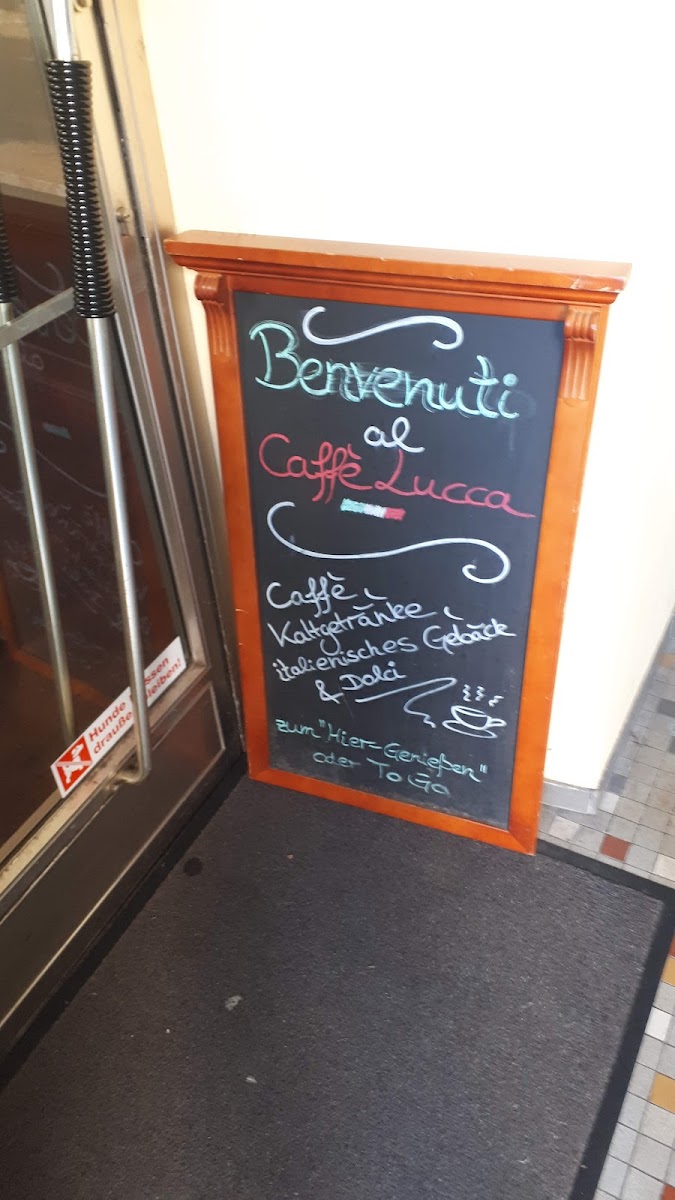 Benvenuti
al
Caffè Lucca
Caffè,
Kaltgetränke,
italienisches Gebäck
& Dolci
zum "Hier-Genießen"
oder To Go
Hunde müssen
draußen bleiben!